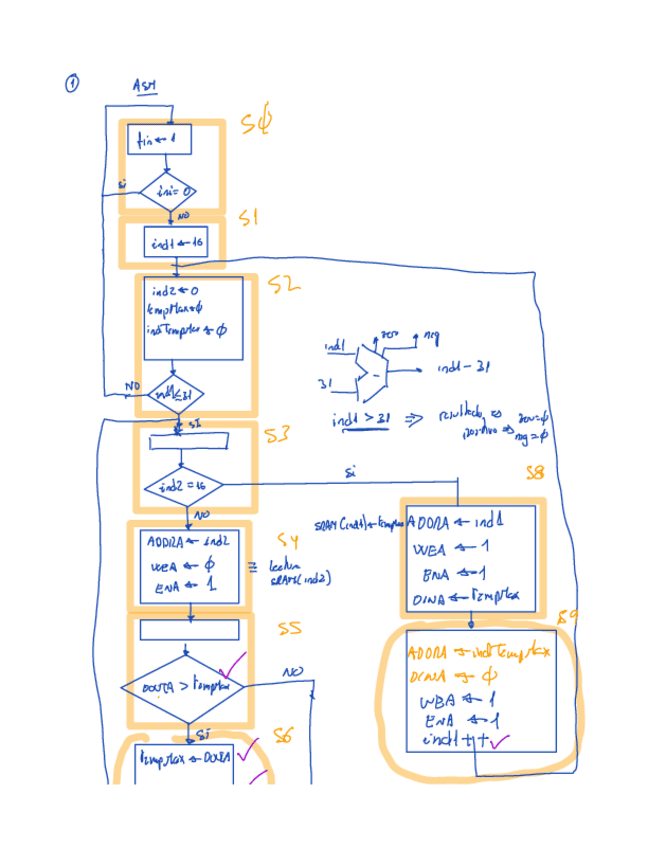 ① ASM
SØ
fin ← 1
si
ini = 0
NO
S1
ind1 ← 16
S2
ind2 ← 0
tempMax ← Ø
indTempMax ← Ø
NO
ind1 ≤ 31
SI
zero
neg
ind1
31
-
ind1 - 31
ind1 > 31 ⇒ resultado
positivo ⇒ zero = Ø
neg = Ø
S3
ind2 = 16
si
NO
S8
SRAM(ind1) ← tempMax
ADDRA ← ind1
WEA ← 1
ENA ← 1
DINA ← TempMax
S4
ADDRA ← ind2
WEA ← Ø
ENA ← 1
≡ lectura
SRAM(ind2)
S9
ADDRA ← indTempMax
DINA ← Ø
WEA ← 1
ENA ← 1
ind1 + +
S5
DOUTA > TempMax
NO
Si
S6
TempMax ← DOUTA